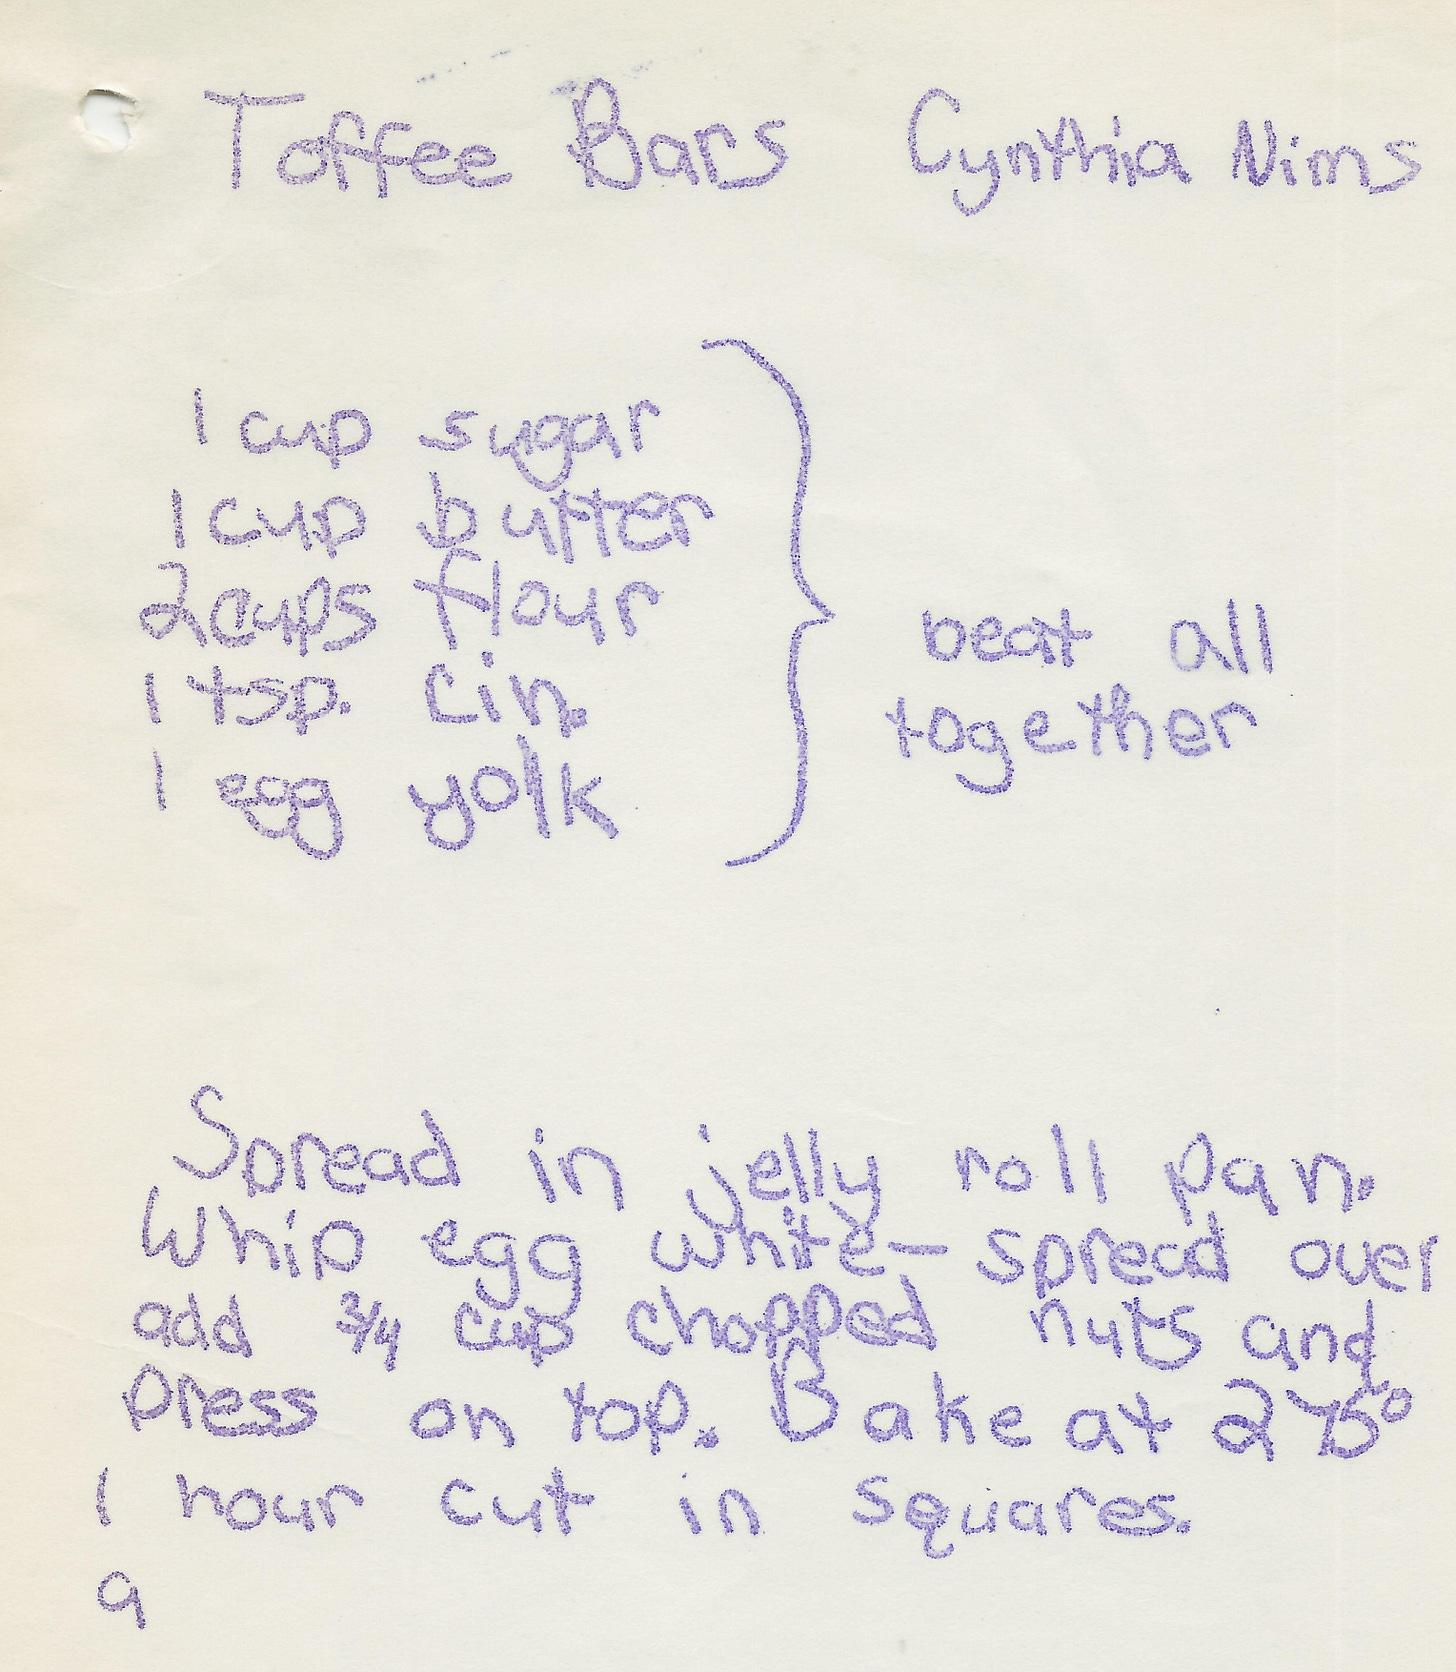 Toffee Bars Cynthia Nims
1 cup sugar
1 cup butter
2 cups flour
1 tsp. cin.
1 egg yolk
beat all
together
Spread in jelly roll pan.
Whip egg white — spread over
add 3/4 cup chopped nuts and
press on top. Bake at 275°
1 hour cut in squares.
9